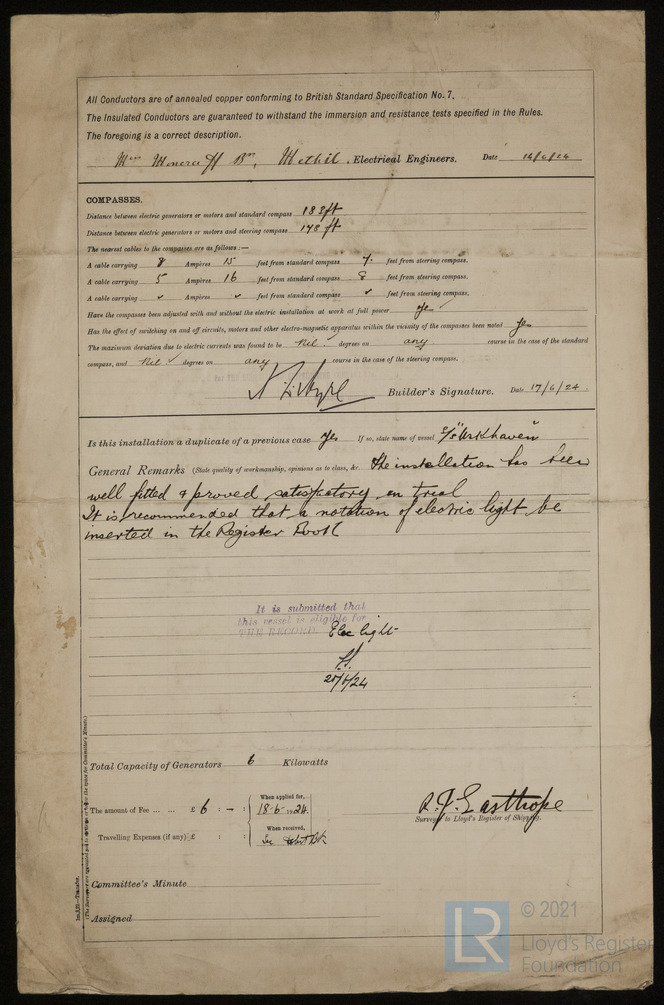 All Conductors are of annealed copper conforming to British Standard Specification No. 7.
The Insulated Conductors are guaranteed to withstand the immersion and resistance tests specified in the Rules.
The foregoing is a correct description.
Moncrieff Methil. Electrical Engineers. Date 14/6/24
COMPASSES.
Distance between electric generators or motors and standard compass 183ft
Distance between electric generators or motors and steering compass 178 ft
The nearest cables to the compasses are as follows:—
A cable carrying 8 Ampères 15 feet from standard compass 7. feet from steering compass.
A cable carrying 5 Ampères 16 feet from standard compass 8 feet from steering compass.
A cable carrying ✓ Ampères ✓ feet from standard compass ✓ feet from steering compass.
Have the compasses been adjusted with and without the electric installation at work at full power Yes
Has the effect of switching on and off circuits, motors and other electro-magnetic apparatus within the vicinity of the compasses been noted Yes
The maximum deviation due to electric currents was found to be Nil ✓ degrees on any course in the case of the standard
compass, and Nil ✓ degrees on any course in the case of the steering compass.
Builder's Signature. Date 17/6/24.
Is this installation a duplicate of a previous case Yes If so, state name of vessel S/S "Urkhaven"
General Remarks (State quality of workmanship, opinions as to class, &c. The installation has been
well fitted & proved satisfactory on trial
It is recommended that a notation of electric light be
inserted in the Register Book
It is submitted that
this vessel is eligible for
THE RECORD. Elec light
20/6/24
Total Capacity of Generators 6 Kilowatts
The amount of Fee ... ... £ 6 : — :
When applied for,
18.6.1924.
Travelling Expenses (if any) £ : :
When received,
R. J. Easthope
Surveyor to Lloyd's Register of Shipping.
Committee's Minute
Assigned
LR © 2021
Lloyd's Register
Foundation